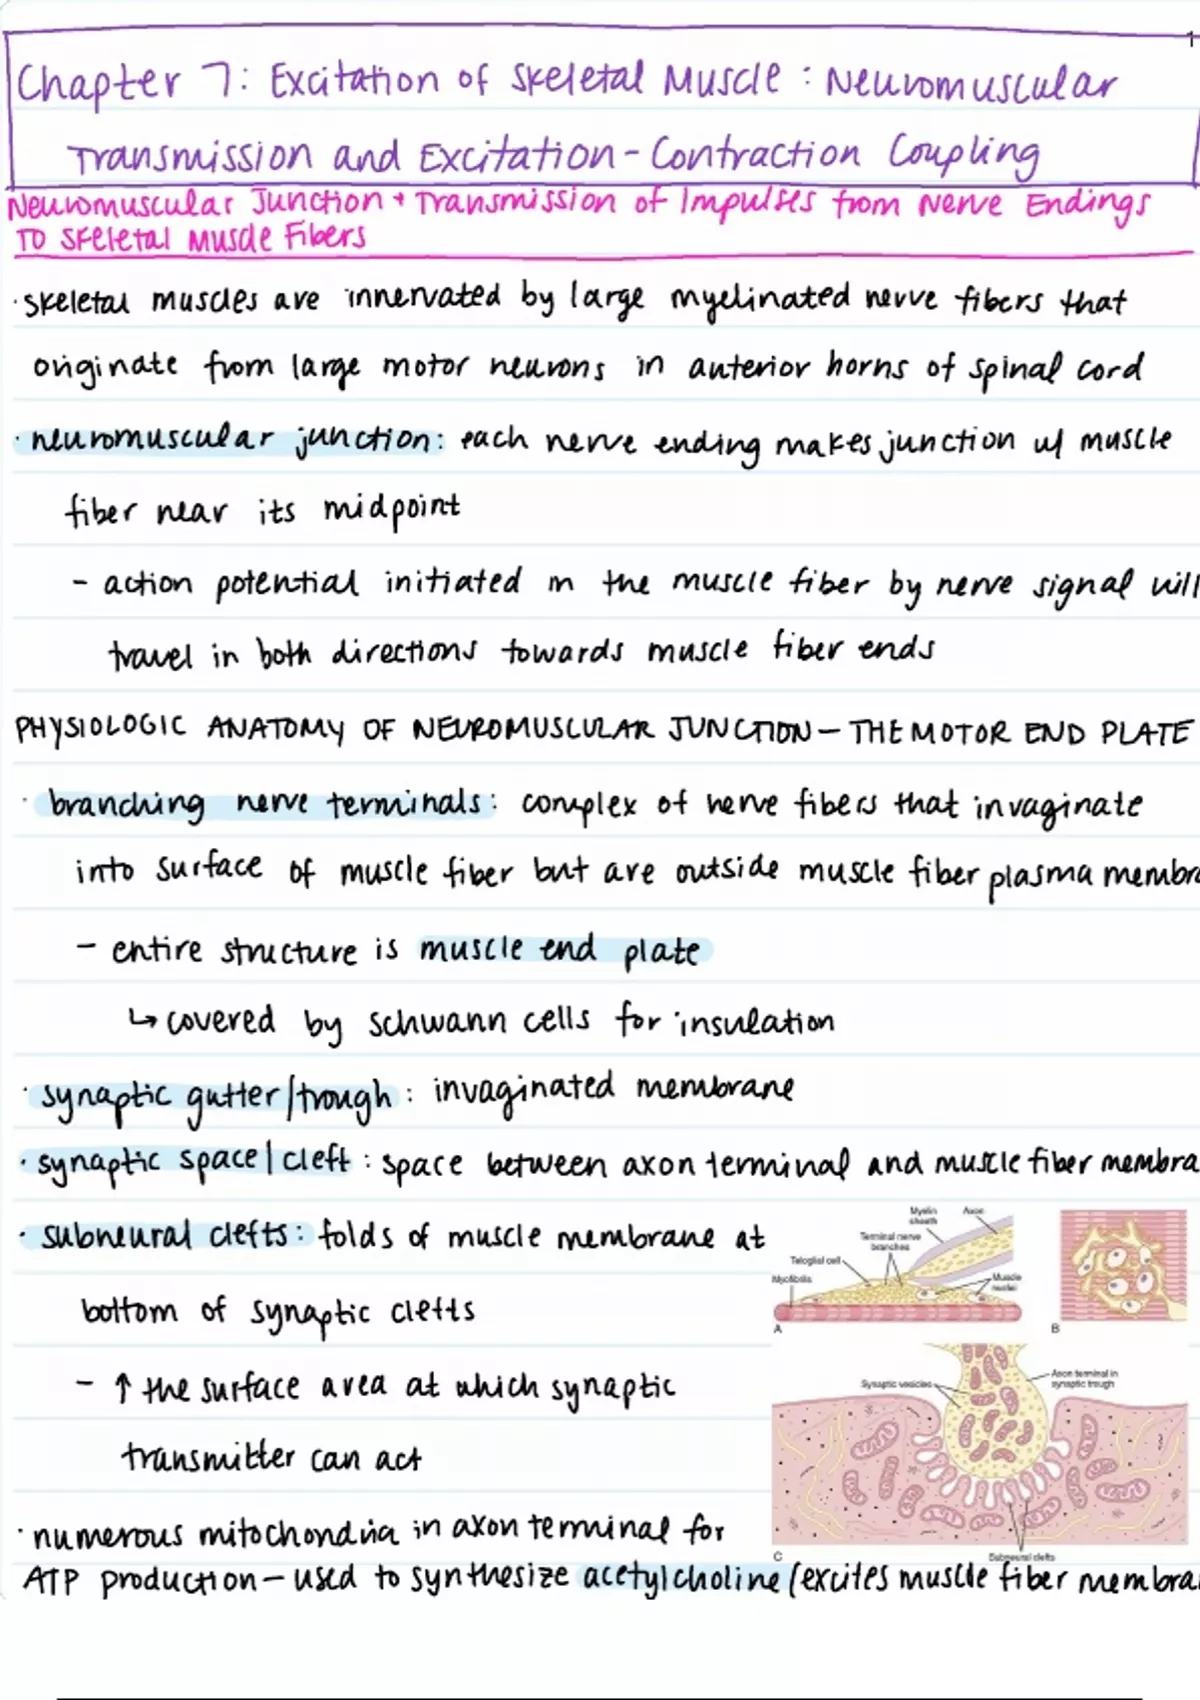 1
Chapter 7: Excitation of Skeletal Muscle: Neuromuscular
Transmission and Excitation-Contraction Coupling
Neuromuscular Junction + Transmission of Impulses from Nerve Endings
to Skeletal Muscle Fibers
· skeletal muscles are innervated by large myelinated nerve fibers that
originate from large motor neurons in anterior horns of spinal cord
· neuromuscular junction: each nerve ending makes junction w/ muscle
fiber near its midpoint
- action potential initiated in the muscle fiber by nerve signal will
travel in both directions towards muscle fiber ends
PHYSIOLOGIC ANATOMY OF NEUROMUSCULAR JUNCTION — THE MOTOR END PLATE
· branching nerve terminals: complex of nerve fibers that invaginate
into surface of muscle fiber but are outside muscle fiber plasma membra
- entire structure is muscle end plate
↳ covered by schwann cells for insulation
· synaptic gutter/trough: invaginated membrane
· synaptic space/cleft: space between axon terminal and muscle fiber membra
· subneural clefts: folds of muscle membrane at
bottom of synaptic clefts
- ↑ the surface area at which synaptic
transmitter can act
· numerous mitochondria in axon terminal for
ATP production — used to synthesize acetylcholine (excites muscle fiber membra
Myelin
sheath
Axon
Terminal nerve
branches
Teloglial cell
Myofibrils
Muscle
nuclei
A
B
Synaptic vesicles
Axon terminal in
synaptic trough
C
Subneural clefts